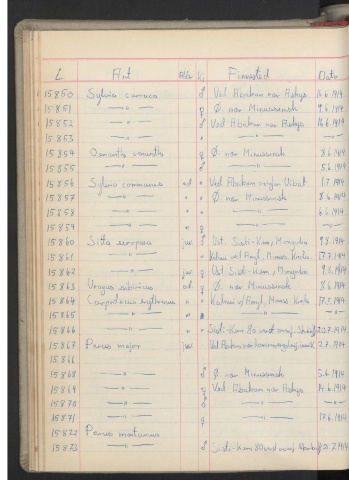 L Art Alder Kj Finnested Dato
15850 Sylvia curruca ♂ Ved Abakan nær Askys 16.6.1914
15851 —"— ♀ Ø. nær Minussinsk 9.6.1914
15852 —"— ♂ Ved Abakan nær Askys 16.6.1914
15853 —"— " —"— —"—
15854 Oenanthe oenanthe ♀ Ø. nær Minussinsk 8.6.1914
15855 —"— ♂ —"— 5.6.1914
15856 Sylvia communis ad " Ved Abakan Uibat 1.7.1914
15857 —"— " " Ø. nær Minussinsk 8.6.1914
15858 —"— " " —"— 6.6.1914
15859 —"— " ♀ —"— —"—
15860 Sitta europaea juv. ♂ Ust. Sisti-Kem, Mongolia 9.8.1914
15861 —"— " Kalnui v/ Amyl, Minuss. 17.7.1914
15862 —"— juv. ♀ Ust Sisti-Kem, Mongolia 9.8.1914
15863 Uragus sibiricus ad ♀ Ø. nær Minussinsk 8.6.1914
15864 Carpodacus erythrinus " " Kalnui v/ Amyl, Minuss. 17.7.1914
15865 —"— " " —"— —"—
15866 —"— " Sisti-Kem 80 verst 22.7.1914
15867 Parus major juv. Ved Abakan nær 2.7.1914
15866
15868 —"— ♂ Ø nær Minussinsk 5.6.1914
15869 —"— ♀ Ved Abakan nær Askys 14.6.1914
15870 —"— ♂ —"— —"—
15871 —"— ♀ —"— 17.6.1914
15872 Parus montanus
15873 —"— ♂ Sisti-Kem 80 verst 22.7.1914